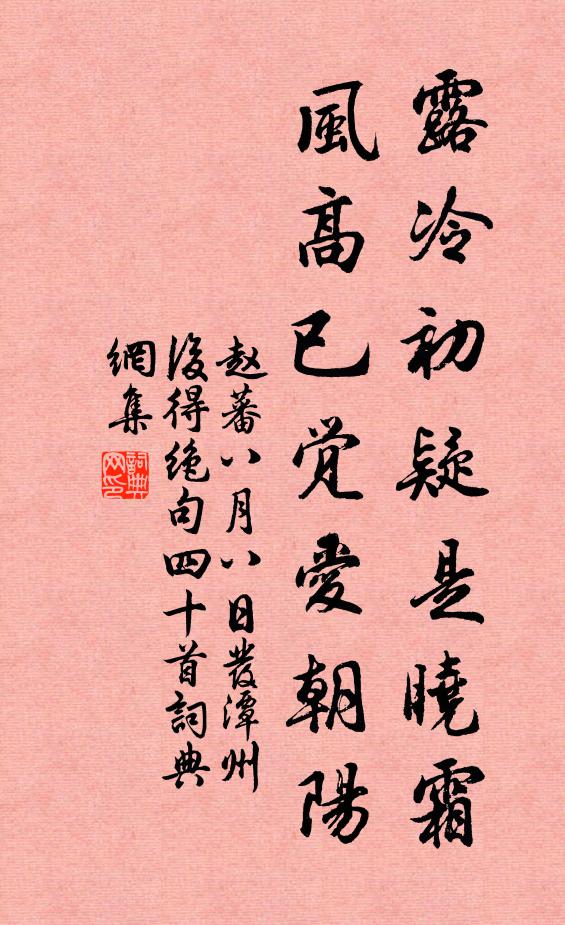 露冷初疑是曉霜
風高已覺愛朝陽
赵蕃八月八日發潭州
後得絶句四十首詞典
網集
詞典網印